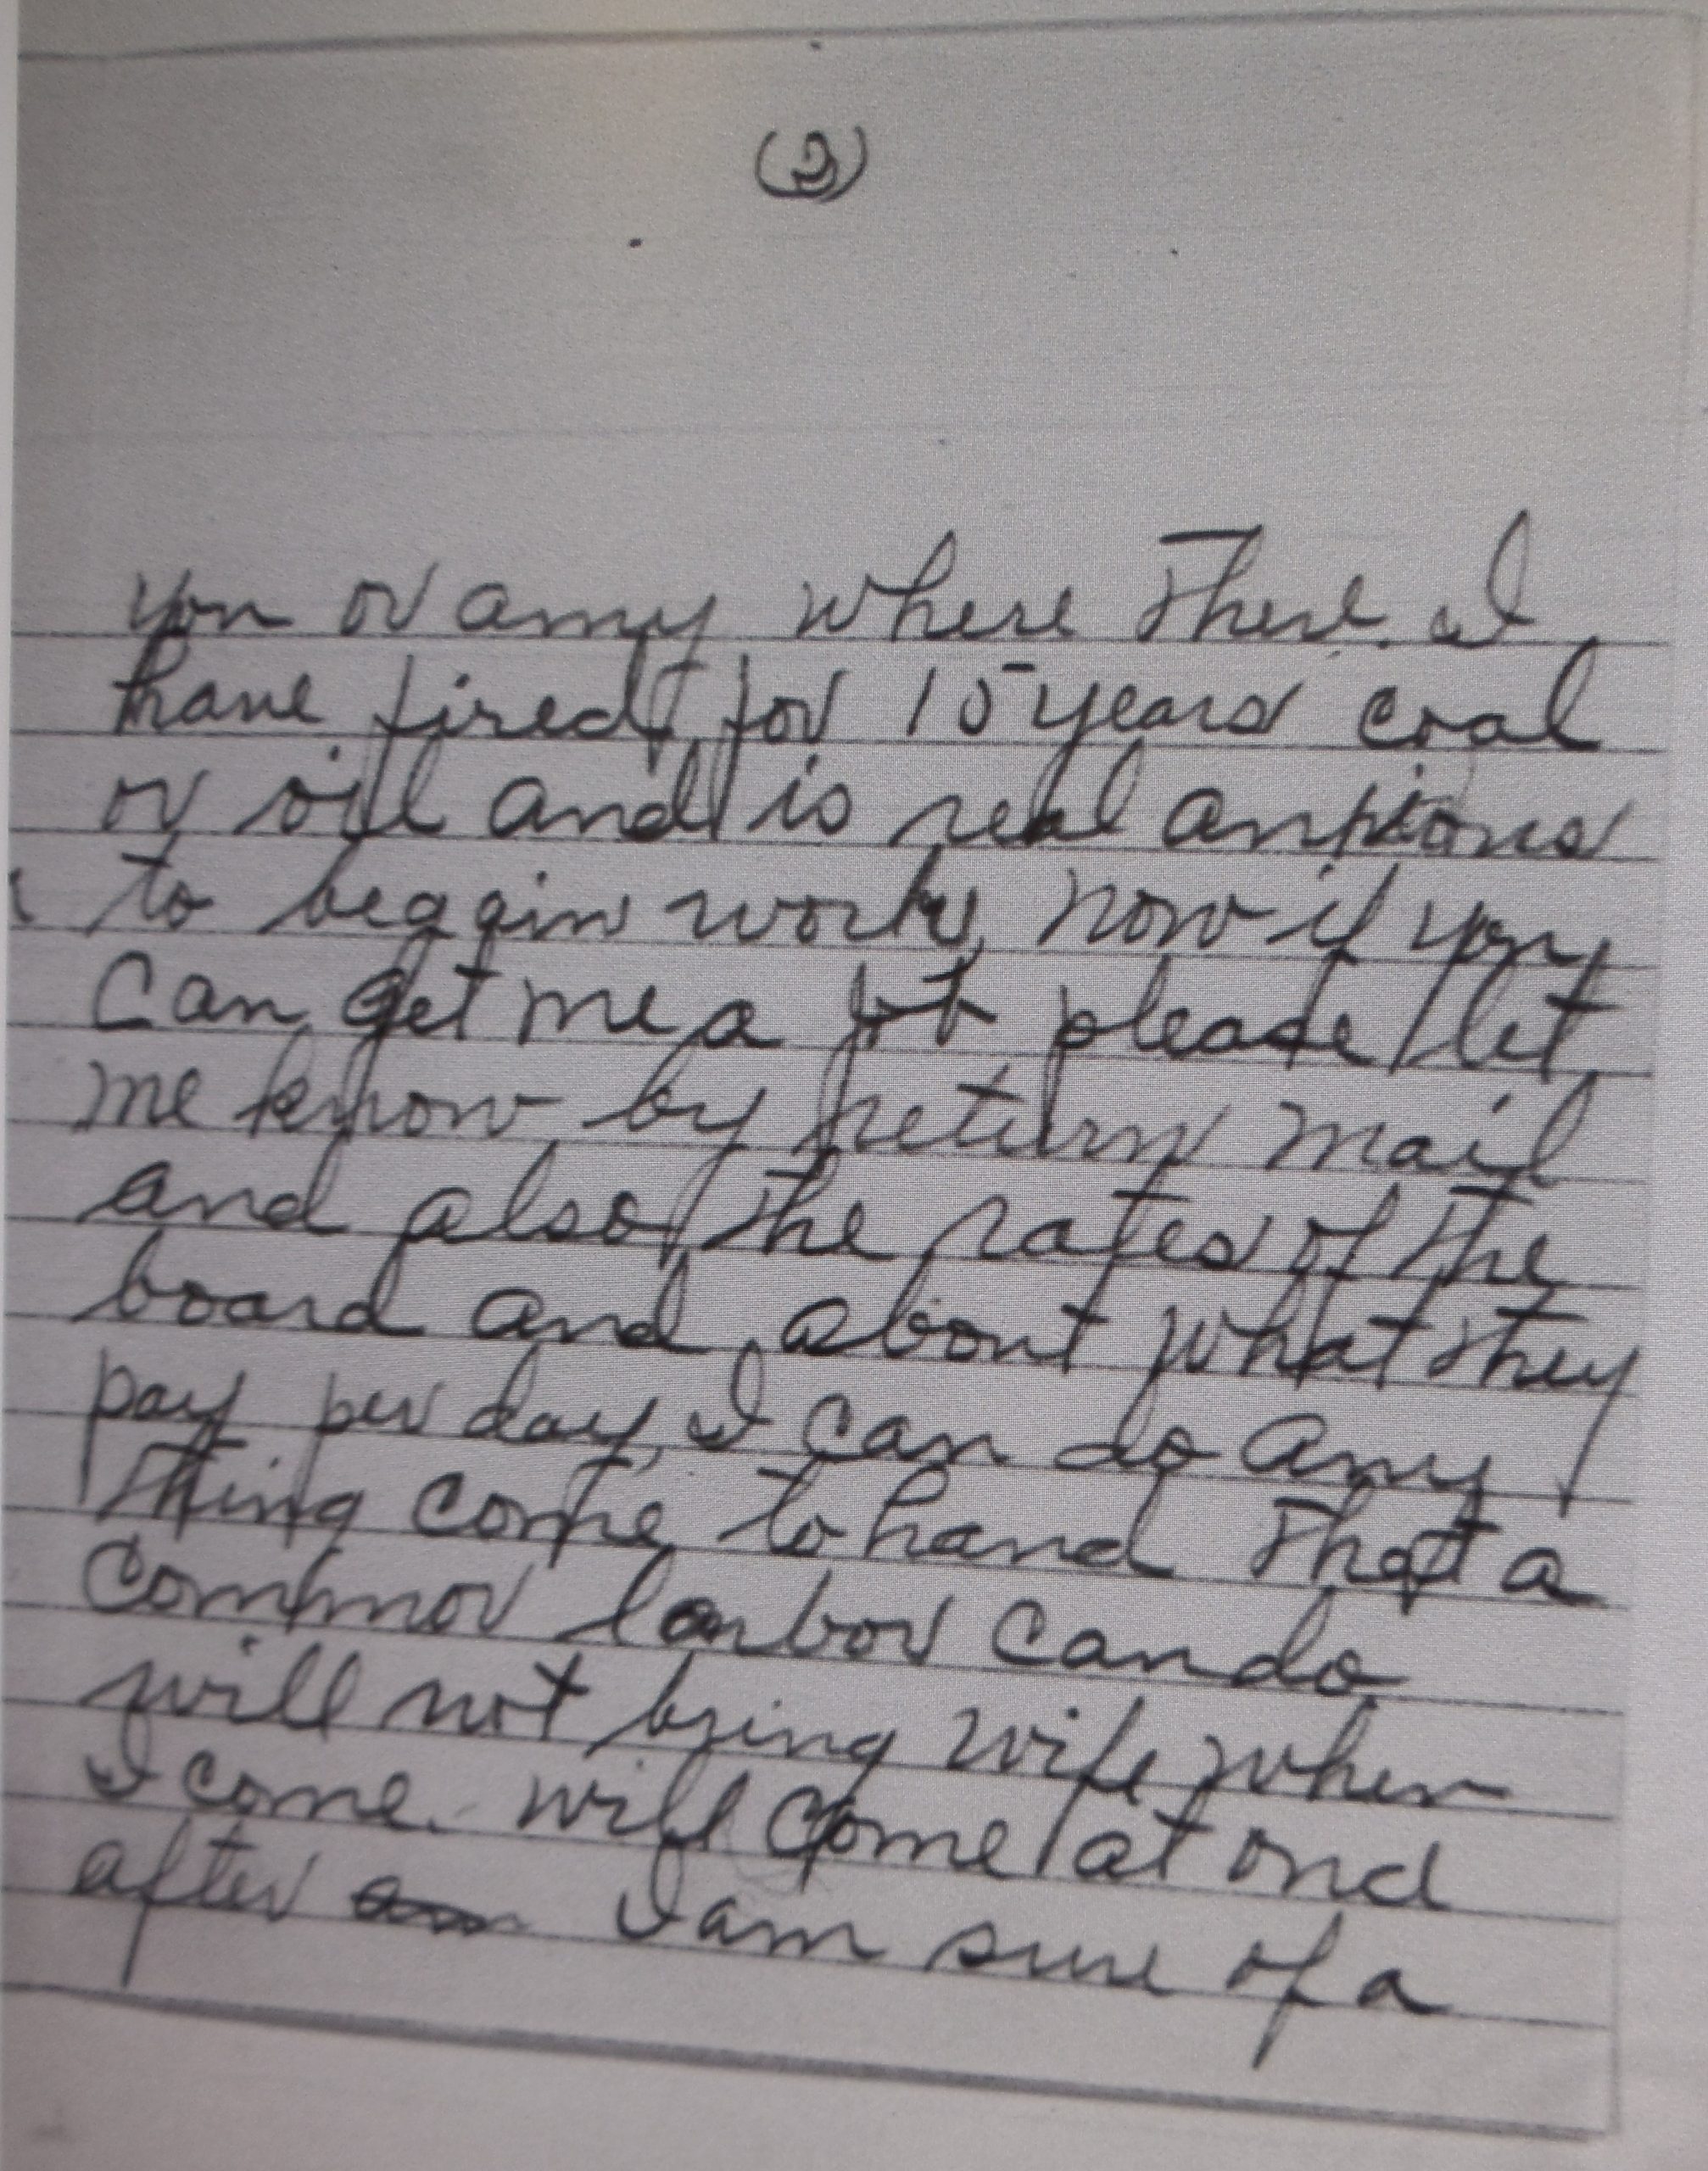 (2)
you or any where there. I
have fired for 15 years coal
or oil and is real anxious
to beggin work, now if you
can get me a job please let
me know by return mail
and also the rates of the
board and about what they
pay per day, I can do any
thing come to hand that a
common laubor can do
will not bring wife when
I come. will come at onc
after I am sure of a